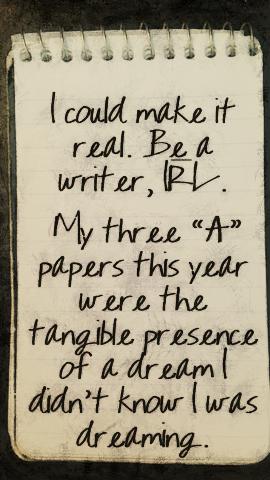 I could make it
real. Be a
writer, IRL.
My three “A”
papers this year
were the
tangible presence
of a dream I
didn't know I was
dreaming.